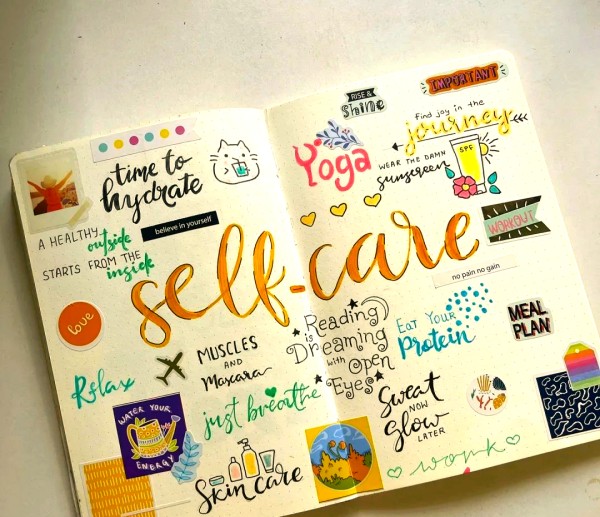 time to
hydrate
A HEALTHY outside
STARTS FROM THE inside
believe in yourself
love
Relax
MUSCLES
AND
Mascara
just breathe
WATER YOUR
ENERGY
Skin care
self-care
RISE &
Shine
IMPORTANT
find joy in the
journey
Yoga
WEAR THE DAMN
sunscreen
SPF
WORKOUT
no pain no gain
Reading
is
Dreaming
with
Open
Eyes
EAT YOUR
Protein
MEAL
PLAN
Sweat
NOW
Glow
LATER
work